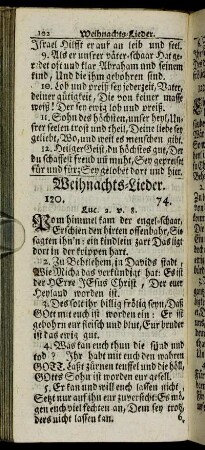 102 Weihnachts-Lieder.
Israel Hilfft er auf an leib und seel.
9. Als er unser väter-schaar Hat ge-
redet oft und klar Abraham und seinem
kind, Und die ihm gebohren sind.
10. Lob und preiß sey jederzeit, Vater,
deiner gütigkeit, Die von keiner masse
weiß! Der sey ewig lob und preiß.
11. Sohn des höchsten, unser heyl, Un-
srer seelen trost und theil, Deine liebe sey
geliebt, Wo, und weil es menschen gibt.
12. Heiliger Geist, du höchstes gut, Der
du schaffest freud uñ muht, Sey gepreiset
für und für; Sey gelobet dort und hier.
Weihnachts-Lieder.
120. 74.
Luc. 2. v. 8.
Vom himmel kam der engel-schaar,
Erschien den hirten offenbahr, Sie
sagten ihn'n: ein kindlein zart Das ligt
dort in der krippen hart.
2. Zu Bethlehem, in Davids stadt,
Wie Micha das verkündigt hat: Es ist
der HErre JEsus Christ, Der euer
Heyland worden ist.
3. Des solt ihr billig frölich seyn, Daß
GOtt mit euch ist worden ein: Er ist
gebohrn eur fleisch und blut, Eur bruder
ist das ewig gut.
4. Was kan euch thun die sünd und
tod? Ihr habt mit euch den wahren
GOTT, Laßt zürnen teuffel und die höll,
GOtts Sohn ist worden eur gesell.
5. Er kan und will euch lassen nicht,
Setzt nur auf ihn eur zuversicht: Es mö-
gen euch viel fechten an, Dem sey trotz,
ders nicht lassen kan. 6.